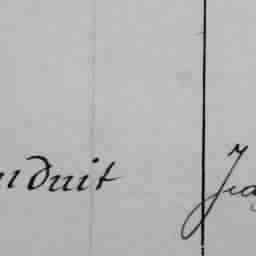 nduit Jea